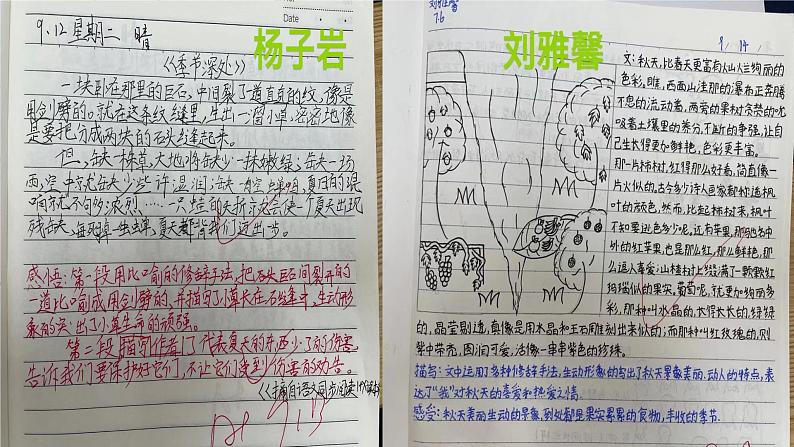 Date
杨子岩
9.12 星期二 晴
《季节深处》
一块卧在那里的巨石,中间裂了一道直直的纹,像是
用剑劈的。就在这条纹缝里,生出一窗小草,密密地像
是要把分成两块的石头给缝起来。
但,缺一株草,大地将缺少一抹嫩绿;缺一场
雨,空中就缺少些许湿润;缺一只蝉唱,夏日的混
响就不够浓烈……一只蛙的夭折,也会使一个夏天出现
残缺。每死掉一虫蝉,夏天都背我们迈出一步。
感悟:第一段用比喻的修辞手法,把石块巨石间裂开的
一道比喻成用剑劈的,并描写了小草长在石缝中,生动形
象的突出了小草生命的顽强。
第二段描写作者了代表夏天的
告诉我们要保护好它们,不让它们受到伤害的劝告。
《摘自语文同步阅读
刘雅馨
刘雅馨
76
9/14
文:秋天,比春天更富有灿烂绚丽的
色彩,瞧,西面山洼那的瀑布正奔腾
不息的流动着,两旁的果树贪婪的吮
吸着土壤里的养分,不断的争强,让自
己生长得更加鲜艳,色彩更丰富。
那一片柿树,红得那么好看,简直像一
片火似的,古今多少诗人画家都称道枫
叶的颜色,然而,比起柿树来,枫叶
不知要逊色多少呢,还有苹果,那驰名中
外的红苹果,也是那么红,那么鲜艳,那
么逗人喜爱;山楂树上缀满了一颗颗红
玛瑙似的果实,葡萄呢,就更加绚丽多
彩,那种叫水晶的,长得长长的,绿绿
的,晶莹剔透,真像是用水晶和玉石雕刻出来似的;而那种叫红玫瑰的,则
紫中带亮,圆润可爱,活像一串串紫色的珍珠。
描写:文中运用了多种修辞手法,生动形象的写出了秋天景象美丽、动人的特点,表
达了“我”对秋天的喜爱和热爱之情。
感受:秋天美丽生动的景象,到处都是果实累累的食物,丰收的季节.